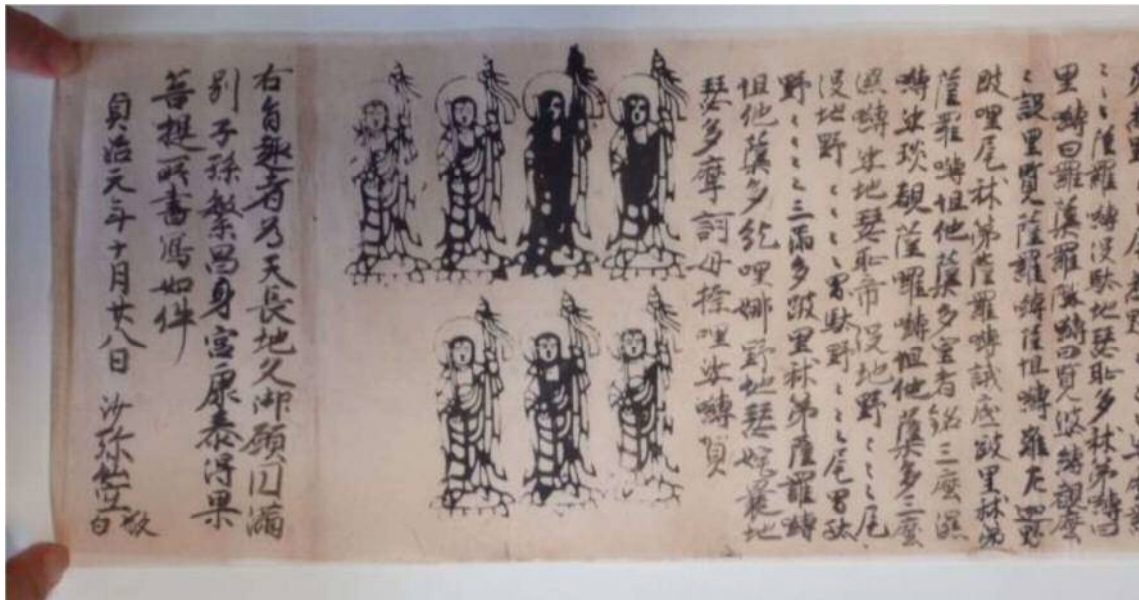 ミミ薩羅嚩没駄地瑟恥多秫弟嚩曰
里嚩曰羅蘖羅陛嚩曰覧波嚩覩麼
ミ設里覧薩羅嚩薩怛嚩難左迦野
跛哩尾秫弟薩羅嚩誐底跛里秫弟
薩羅嚩怛他蘖多室者銘三麼濕
嚩娑琰覩薩囉嚩怛他蘖多三麼
濕嚩娑地瑟恥帝没地野ミミ尾
没地野ミミミ冒駄野ミミ尾冒駄
野ミミミ三滿多跛里秫弟薩羅嚩
怛他蘖多紇哩娜野地瑟姹曩地
瑟多摩訶母捺哩娑嚩賀
右旨趣者為天長地久御願円滿
別子孫繁昌身宮康泰得果
菩提所書寫如件
貞治元年十月廿八日 沙弥 敬白